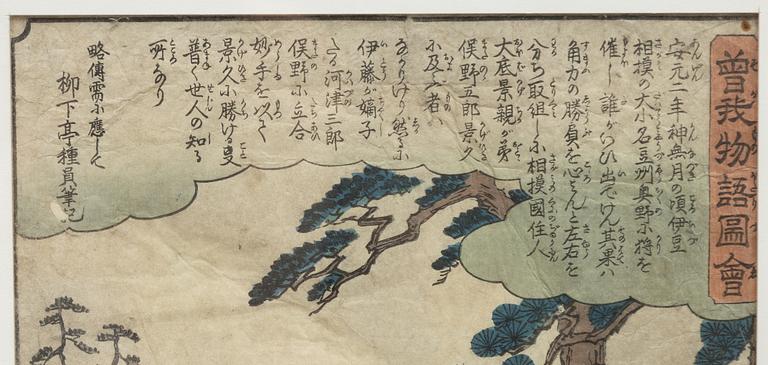 曽我物語圖會
安元二年神無月の頃伊豆
相摸の大小名豆州奥野に狩を
催し誰がいひ出でけん其果は
角力の勝負を心みんと左右を
分ち取組しに相摸國住人
大庭景親が弟
俣野五郎景久
に及ぶ者は
なかりけり然るに
伊藤が嫡子
たる河津三郎
俣野に立合
妙手を以て
景久に勝ける㕝
普く世人の知る
所なり
略傳需に應して
柳下亭種員筆記